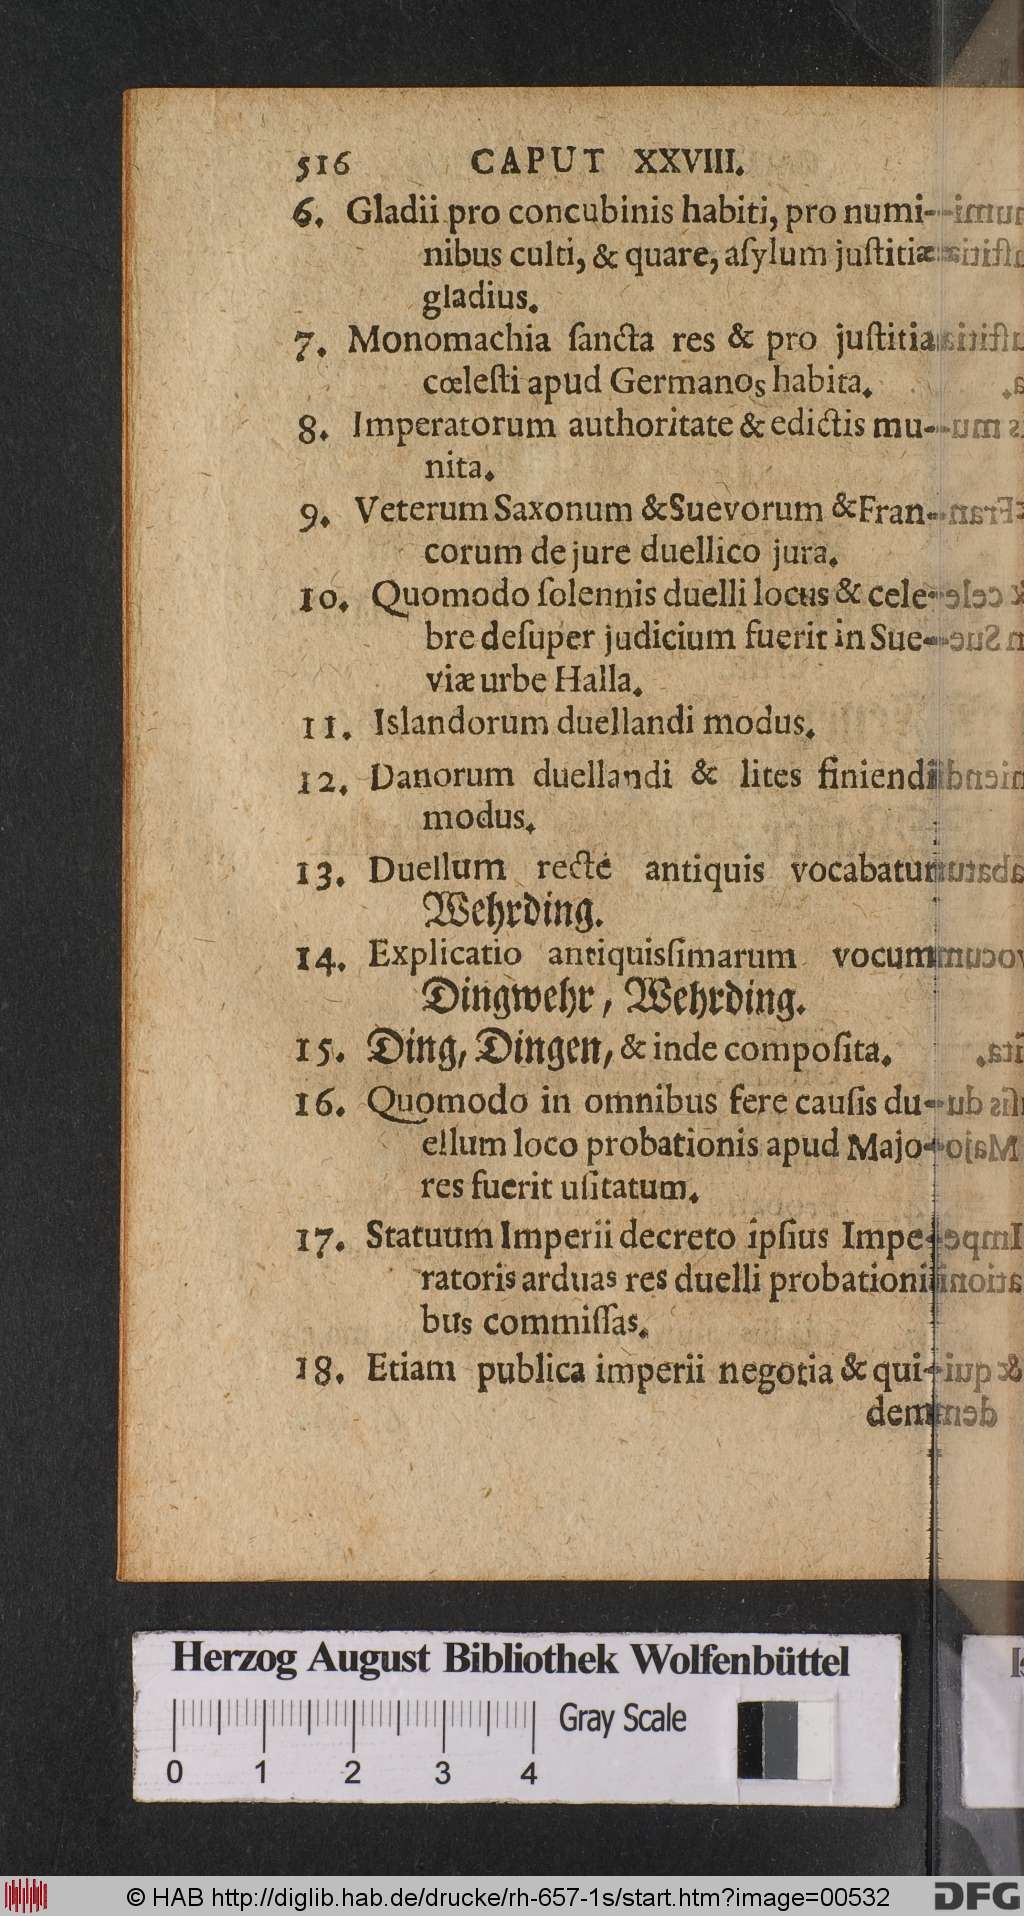 516 CAPUT XXVIII.
6. Gladii pro concubinis habiti, pro numi-
nibus culti, & quare, aſylum juſtitiæ
gladius.
7. Monomachia ſancta res & pro juſtitia
cœleſti apud Germanos habita.
8. Imperatorum authoritate & edictis mu-
nita.
9. Veterum Saxonum & Suevorum & Fran-
corum de jure duellico jura.
10. Quomodo ſolennis duelli locus & cele-
bre deſuper judicium fuerit in Sue-
viæ urbe Halla.
11. Islandorum duellandi modus.
12. Danorum duellandi & lites finiendi
modus.
13. Duellum recté antiquis vocabatur
Wehrding.
14. Explicatio antiquisſimarum vocum
Dingwehr, Wehrding.
15. Ding, Dingen, & inde compoſita.
16. Quomodo in omnibus fere cauſis du-
ellum loco probationis apud Majo-
res fuerit uſitatum.
17. Statuum Imperii decreto ipſius Impe-
ratoris arduas res duelli probationi-
bus commiſſas.
18. Etiam publica imperii negotia & qui-
dem
Herzog August Bibliothek Wolfenbüttel
Gray Scale
0 1 2 3 4
© HAB http://diglib.hab.de/drucke/rh-657-1s/start.htm?image=00532
DFG